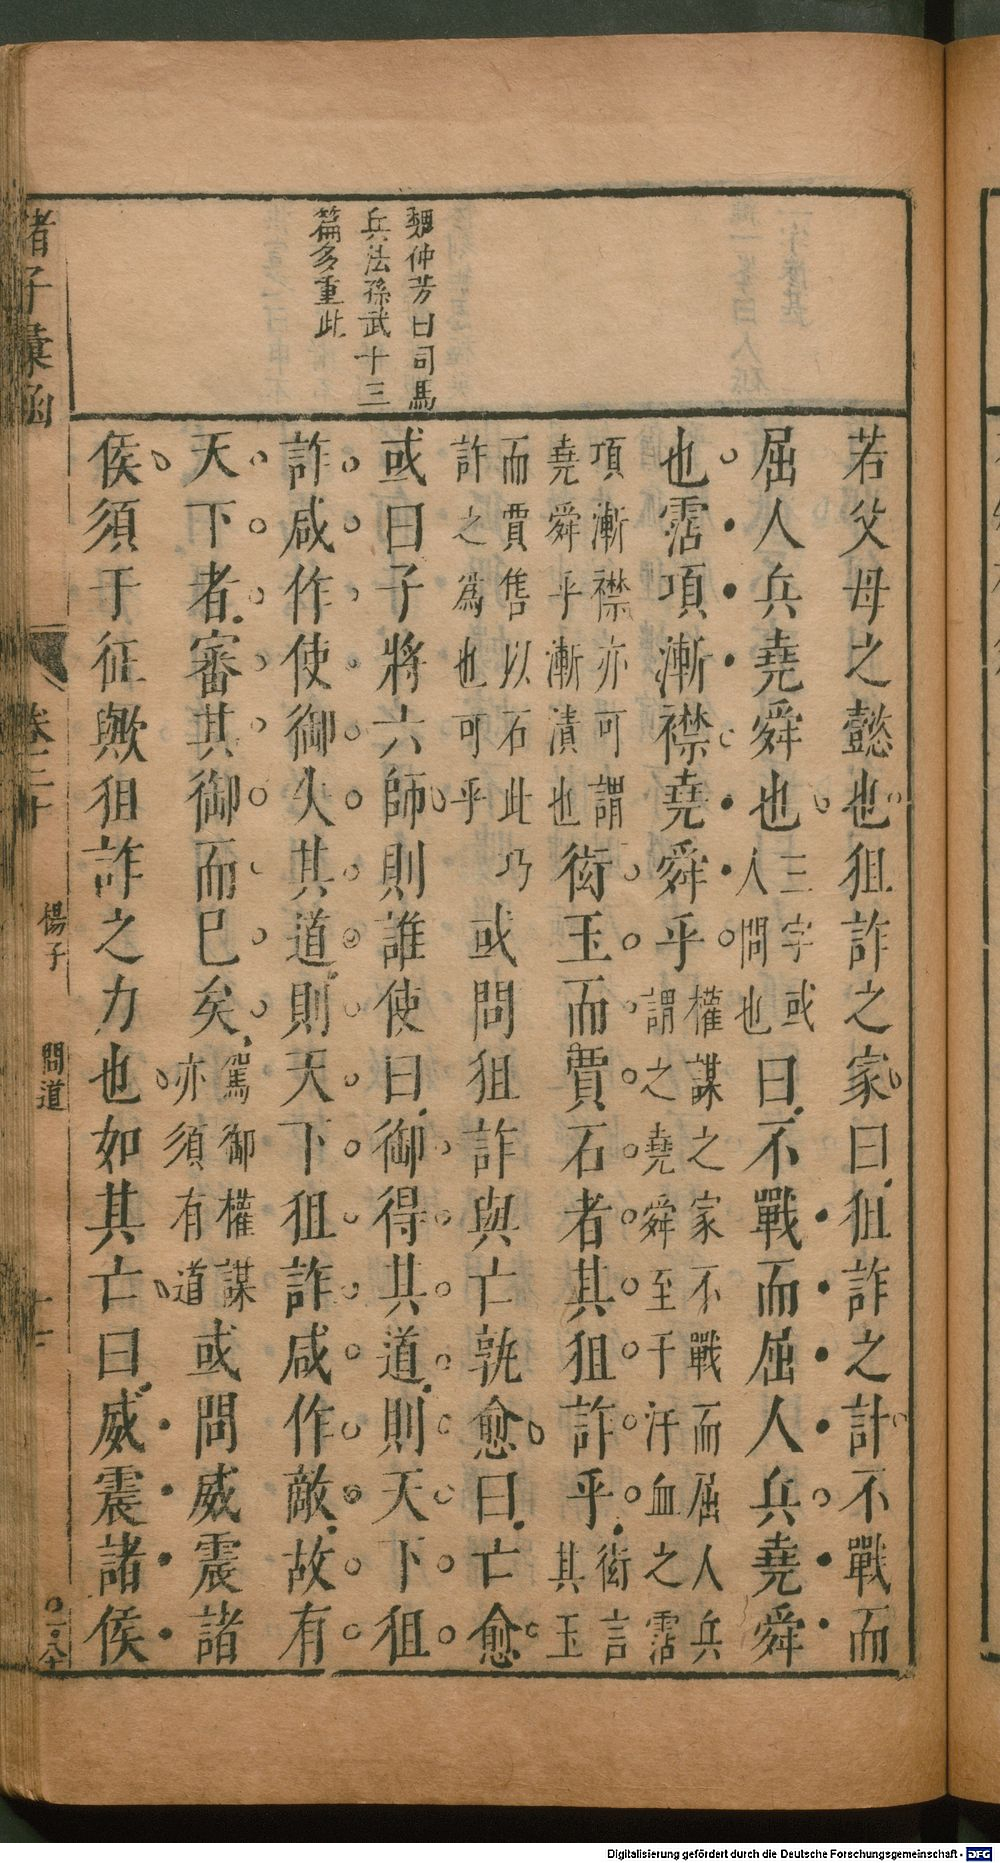 魏仲芳曰司馬
兵法孫武十三
篇多重此
若父母之懿也狙詐之家曰狙詐之計不戰而
屈人兵堯舜也三字或人問也曰不戰而屈人兵堯舜
也霑項漸襟堯舜乎權謀之家不戰而屈人兵謂之堯舜至于汗血之霑
項漸襟亦可謂堯舜乎漸漬也衒玉而賈石者其狙詐乎衒言其玉
而賈雋以石此乃詐之為也可乎或問狙詐與亡孰愈曰亡愈
或曰子將六師則誰使曰御得其道則天下狙
詐咸作使御失其道則天下狙詐咸作敵故有
天下者審其御而巳矣駕御權謀亦須有道或問威震諸
侯須于征歟狙詐之力也如其亡曰威震諸侯
諸子彙函
卷二十
楊子
問道
Digitalisierung gefördert durch die Deutsche Forschungsgemeinschaft - DFG